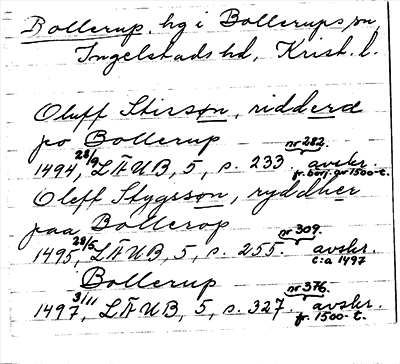 Bollerup, hg i Bollerups sn,
Ingelstads hd, Krist. l.
Oluff Stirsøn, ridderæ
po Bollerup
1494 28/9, LÄUB, 5, s. 233 nr 282. avskr. fr. börj. av 1500-t.
Oleff Stygssøn, ryddher
paa Bollerop
1495 28/5, LÄUB, 5, s. 255. nr 309. avskr. c:a 1497
Bollerup
1497 3/11, LÄUB, 5, s. 327. nr 376. avskr. fr. 1500-t.